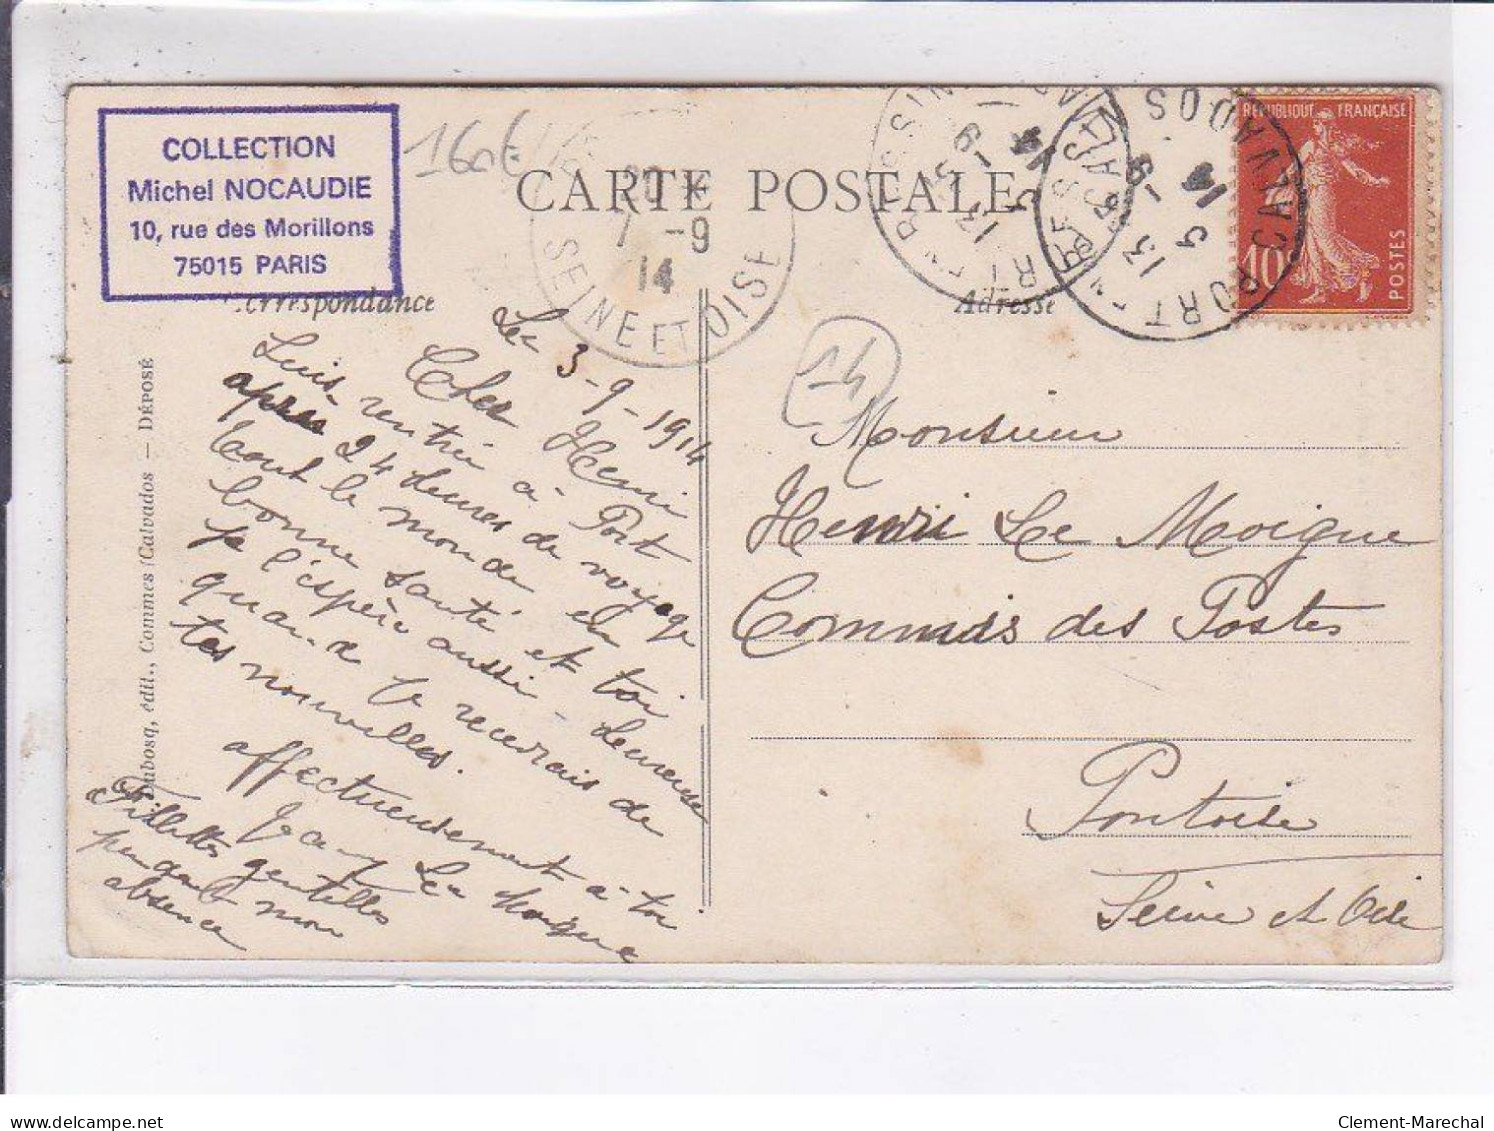 COLLECTION
Michel NOCAUDIE
10, rue des Morillons
75015 PARIS
160€
CARTE POSTALE
Correspondance
Adresse
7 -9
14
SEINE ET OISE
PORT EN BESSIN
CALVADOS
13
5 -9
14
PORT EN BESSIN
CALVADOS
13
5 -9
14
REPUBLIQUE FRANÇAISE
10c
POSTES
14
Le 3-9-1914
Cher Henri
Suis rentrée à Port
après 24 heures de voyage
tout le monde en
bonne santé et toi
je l'espère aussi - heureuse
quand je recevrais de
tes nouvelles.
affectueusement à toi
Le Moigne
Fillettes gentilles
pendant mon
absence
Monsieur
Henri Le Moigne
Commis des Postes
Pontoise
Seine et Oise
Dubosq, édit., Commes (Calvados — DÉPOSÉ
www.delcampe.net
Clement-Marechal